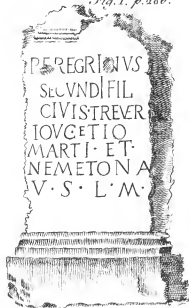 Fig. I. p. 266.
PEREGRINVS
SECVNDI FIL
CIVIS·TREVER
IOVGETIO
MARTI·ET·
NEMETONA
V·S·L·M·